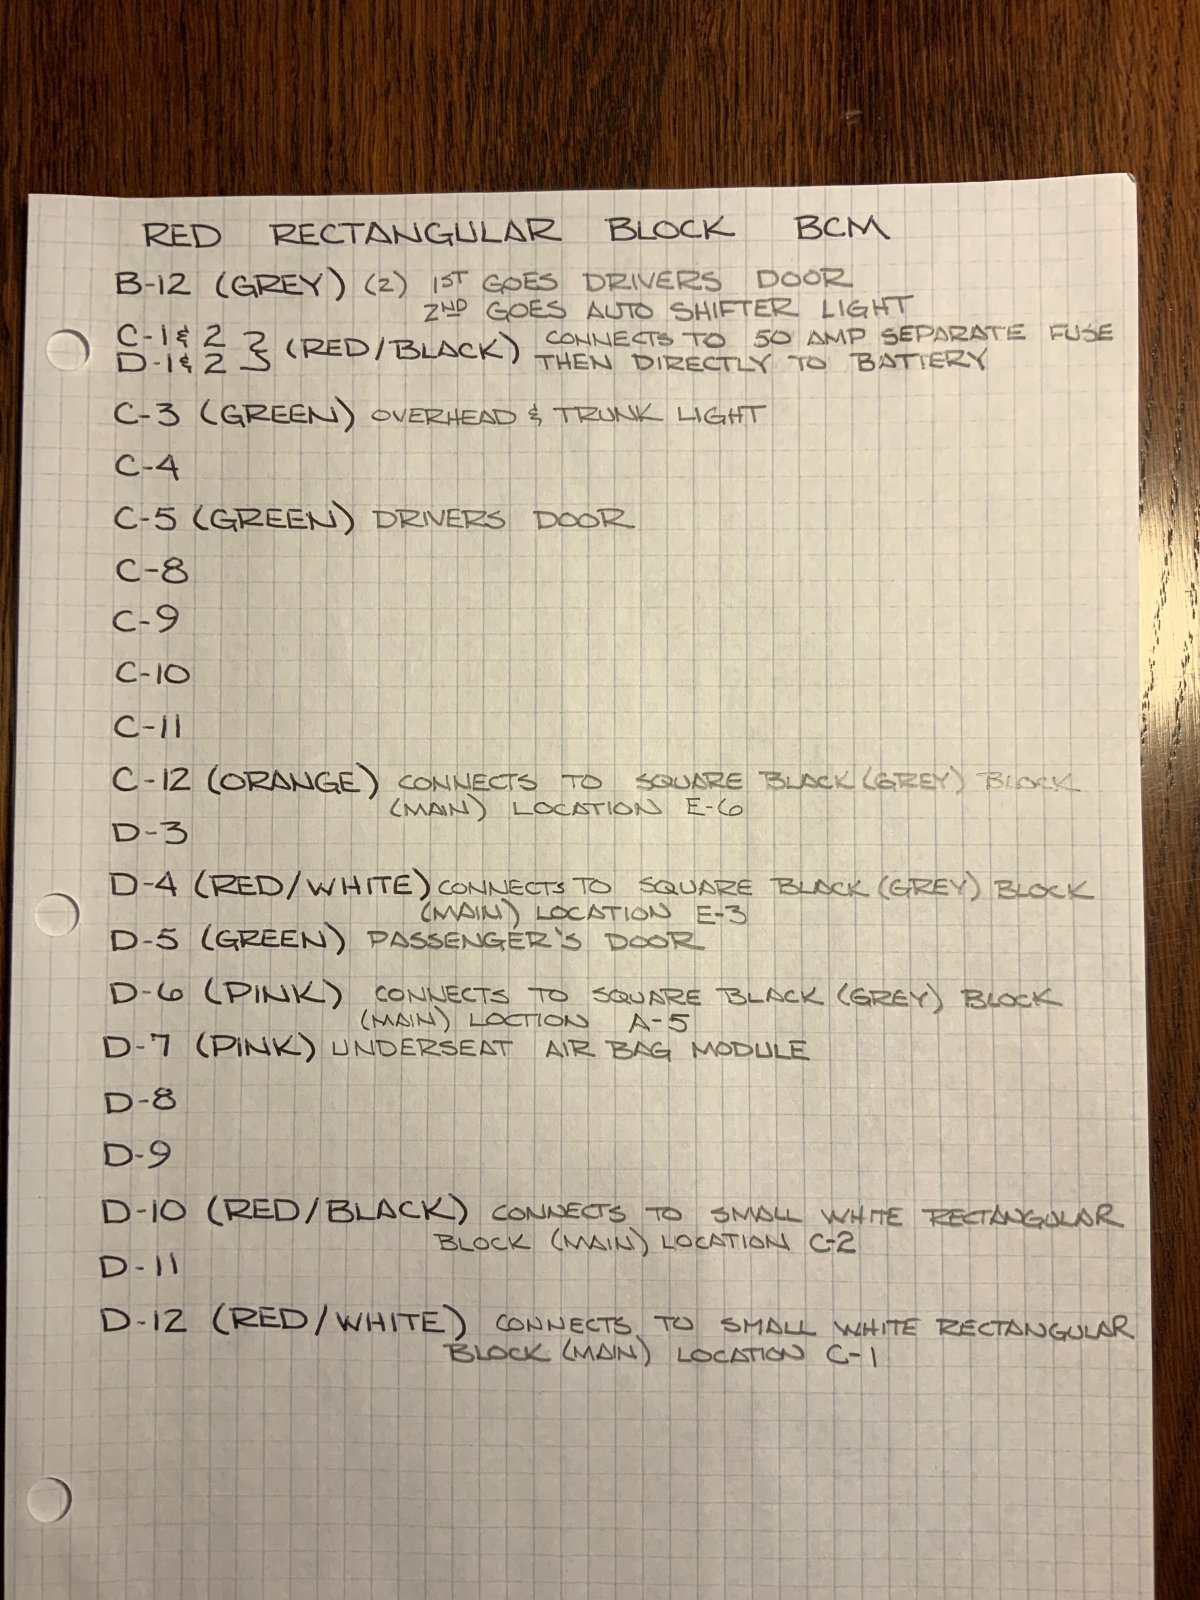 RED RECTANGULAR BLOCK BCM
B-12 (GREY) (2) 1ST GOES DRIVERS DOOR
2ND GOES AUTO SHIFTER LIGHT
C-1 & 2 } (RED/BLACK) CONNECTS TO 50 AMP SEPARATE FUSE
D-1 & 2 THEN DIRECTLY TO BATTERY
C-3 (GREEN) OVERHEAD & TRUNK LIGHT
C-4
C-5 (GREEN) DRIVERS DOOR
C-8
C-9
C-10
C-11
C-12 (ORANGE) CONNECTS TO SQUARE BLACK (GREY) BLOCK
(MAIN) LOCATION E-6
D-3
D-4 (RED/WHITE) CONNECTS TO SQUARE BLACK (GREY) BLOCK
(MAIN) LOCATION E-3
D-5 (GREEN) PASSENGER'S DOOR
D-6 (PINK) CONNECTS TO SQUARE BLACK (GREY) BLOCK
(MAIN) LOCTION A-5
D-7 (PINK) UNDERSEAT AIR BAG MODULE
D-8
D-9
D-10 (RED/BLACK) CONNECTS TO SMALL WHITE RECTANGULAR
BLOCK (MAIN) LOCATION C-2
D-11
D-12 (RED/WHITE) CONNECTS TO SMALL WHITE RECTANGULAR
BLOCK (MAIN) LOCATION C-1